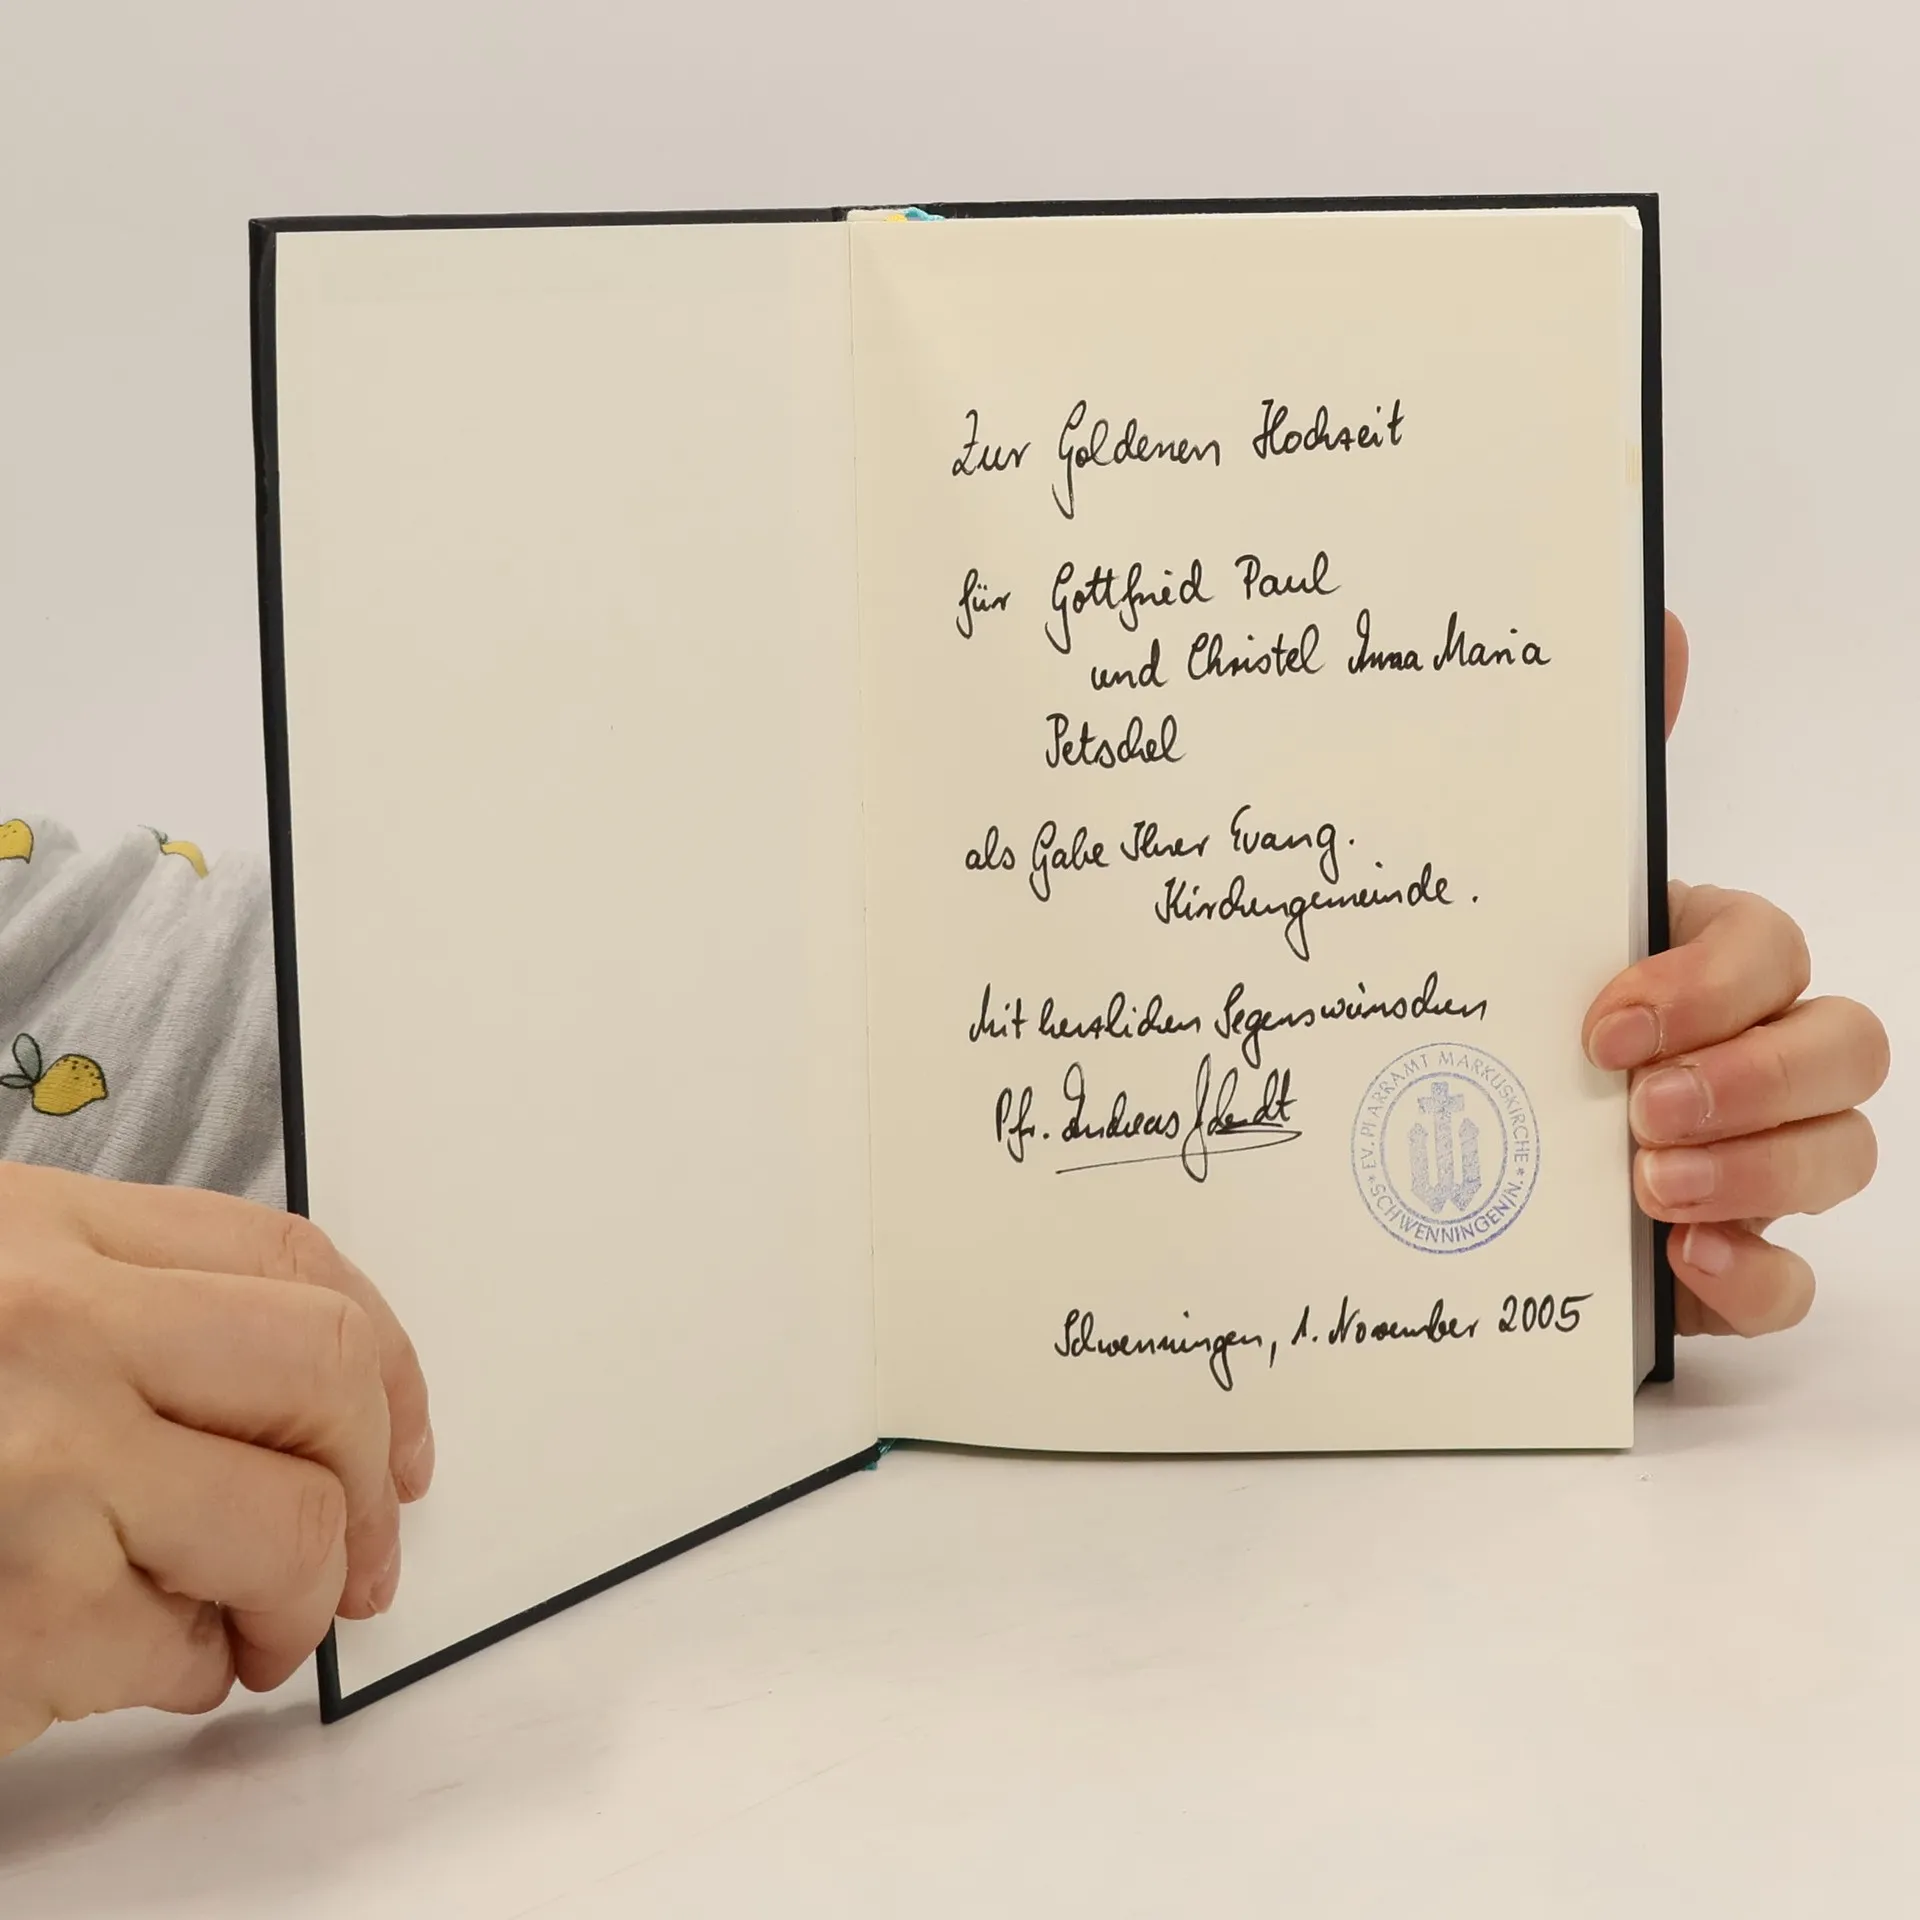 Zur Goldenen Hochzeit
für Gottfried Paul
und Christel Anna Maria
Petschel
als Gabe Ihrer Evang.
Kirchengemeinde.
Mit herzlichen Segenswünschen
Pfr. Andreas
EV. PFARRAMT MARKUSKIRCHE
* SCHWENNINGEN/N. *
Schwenningen, 1. November 2005